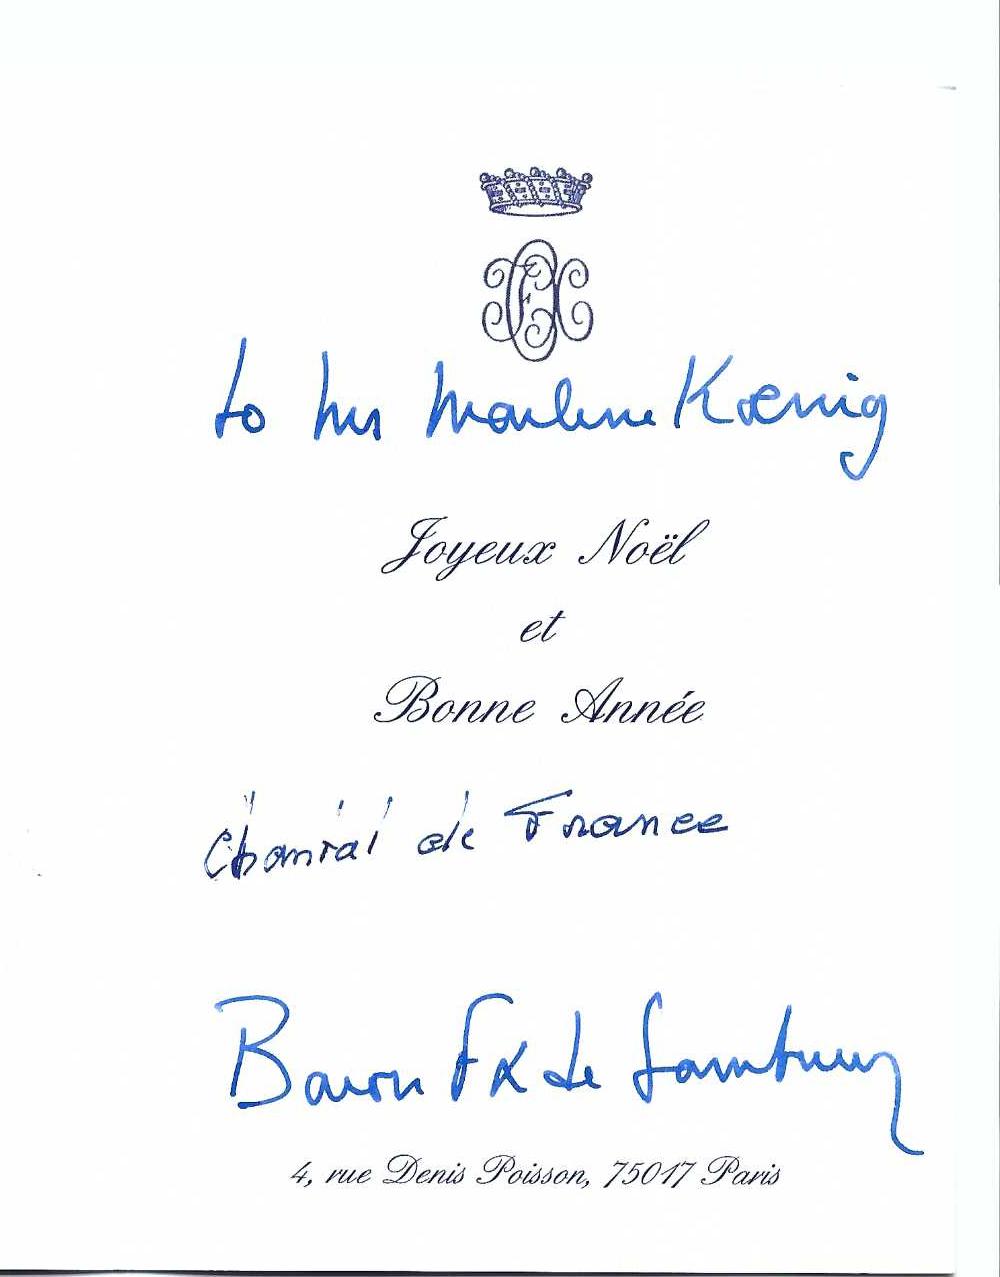 to Mrs Marlene Kœnig
Joyeux Noël
et
Bonne Année
Chantal de France
Baron FX de Sambucy
4, rue Denis Poisson, 75017 Paris